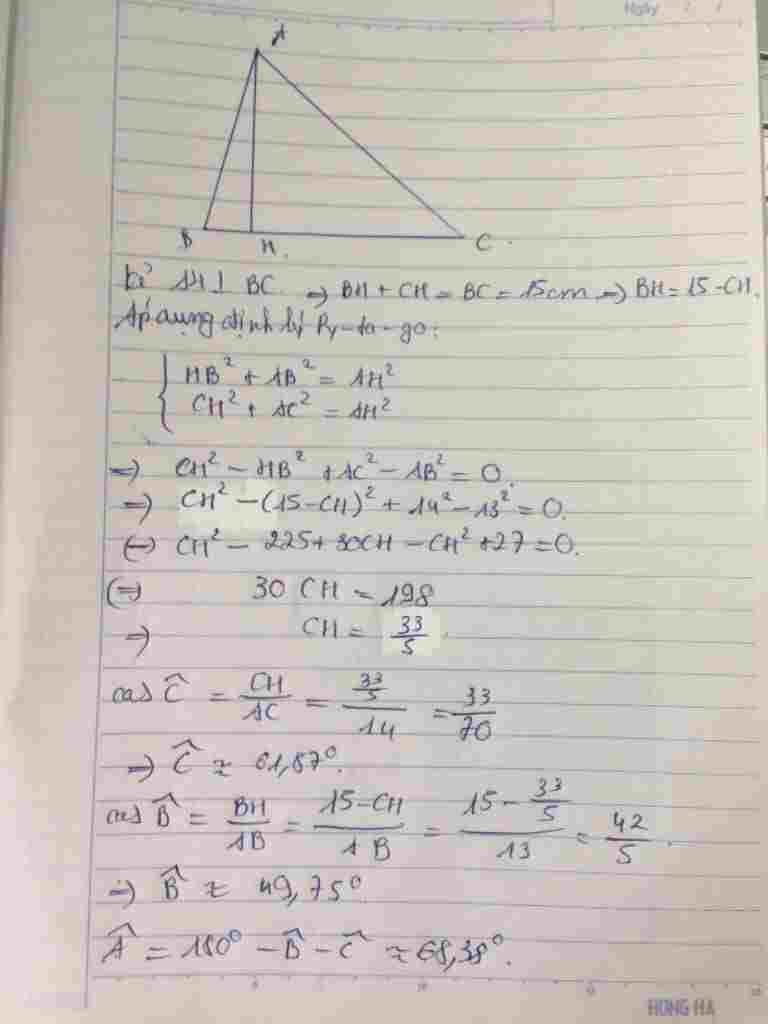 Ngày
A
B H C
kẻ AH ⊥ BC. => BH + CH = BC = 15cm => BH = 15 - CH.
Áp dụng định lý Py-ta-go:
HB² + AB² = AH²
CH² + AC² = AH²
=> CH² - HB² + AC² - AB² = 0.
=> CH² - (15-CH)² + 14² - 13² = 0.
<=> CH² - 225 + 30CH - CH² + 27 = 0.
<=> 30 CH = 198
=> CH = 33/5.
cos Ĉ = CH/AC = (33/5)/14 = 33/70
=> Ĉ ≈ 61,87°.
cos B̂ = BH/AB = (15-CH)/AB = (15 - 33/5)/13 = 42/5.
=> B̂ ≈ 49,75°
Â = 180° - B̂ - Ĉ ≈ 68,38°.
HONG HA